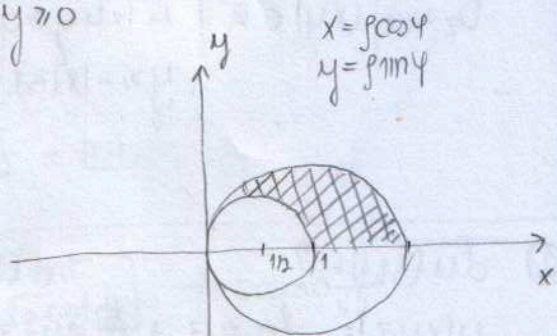 y ⩾ 0
x = ρcosφ
y = ρsinφ
y
1/2
1
x